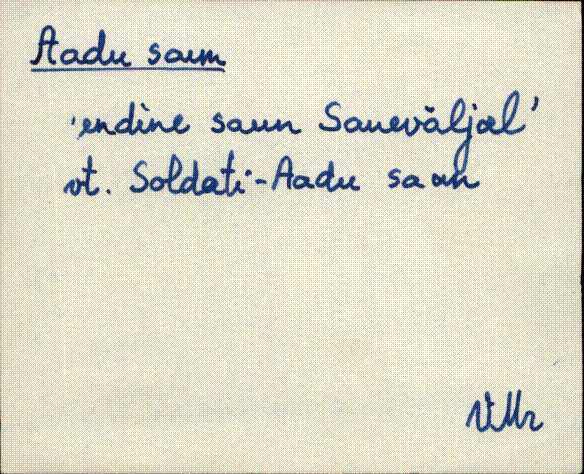 Aadu saun
'endine saun Saueväljal'
vt. Soldati-Aadu saun
VMr